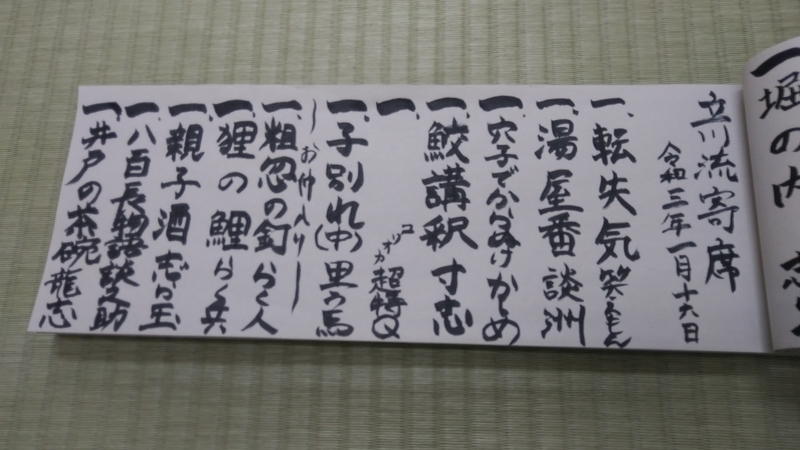 立川流寄席
令和三年一月十六日
一、転失気 笑えもん
一、湯屋番 談洲
一、穴子でからぬけ かしめ
一、鮫講釈 寸志
一、 コリオカ 超特Q
一、子別れ(中) 里う馬
〜お仲入り〜
一、粗忽の釘 らく人
一、狸の鯉 らく兵
一、親子酒 志ら玉
一、八百長物語 談之助
一、井戸の茶碗 龍志
一、堀の内